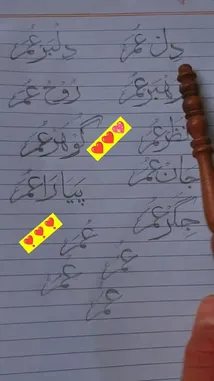 دِلْ عُمر دلبَر عُمر
رَهبر عُمر رُوحْ عُمر
نظر عُمر گوهر عُمر
جانْ عُمر پیارا عُمر
جِگر عُمر
عُمر
عُمر
عُمر
عُمر